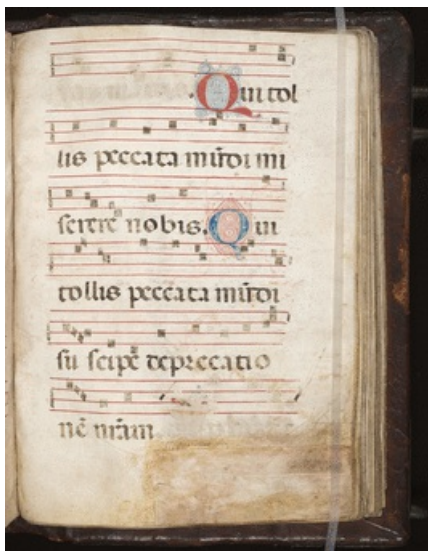 Qui tol
lis peccata mūdi mi
serere nobis. Qui
tollis peccata mūdi
su scipe deprecatio
nē nr̄am.